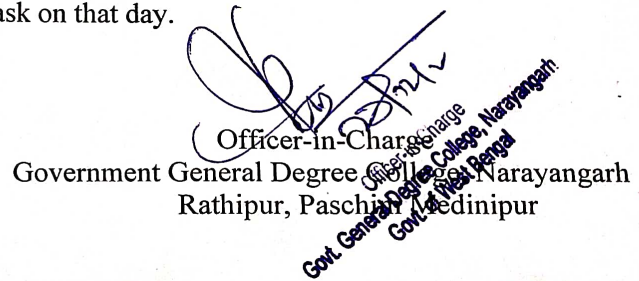 ask on that day.
Officer-in-Charge
Government General Degree College, Narayangarh
Rathipur, Paschim Medinipur
Officer-in-Charge
Govt. General Degree College, Narayangarh
Govt. of West Bengal